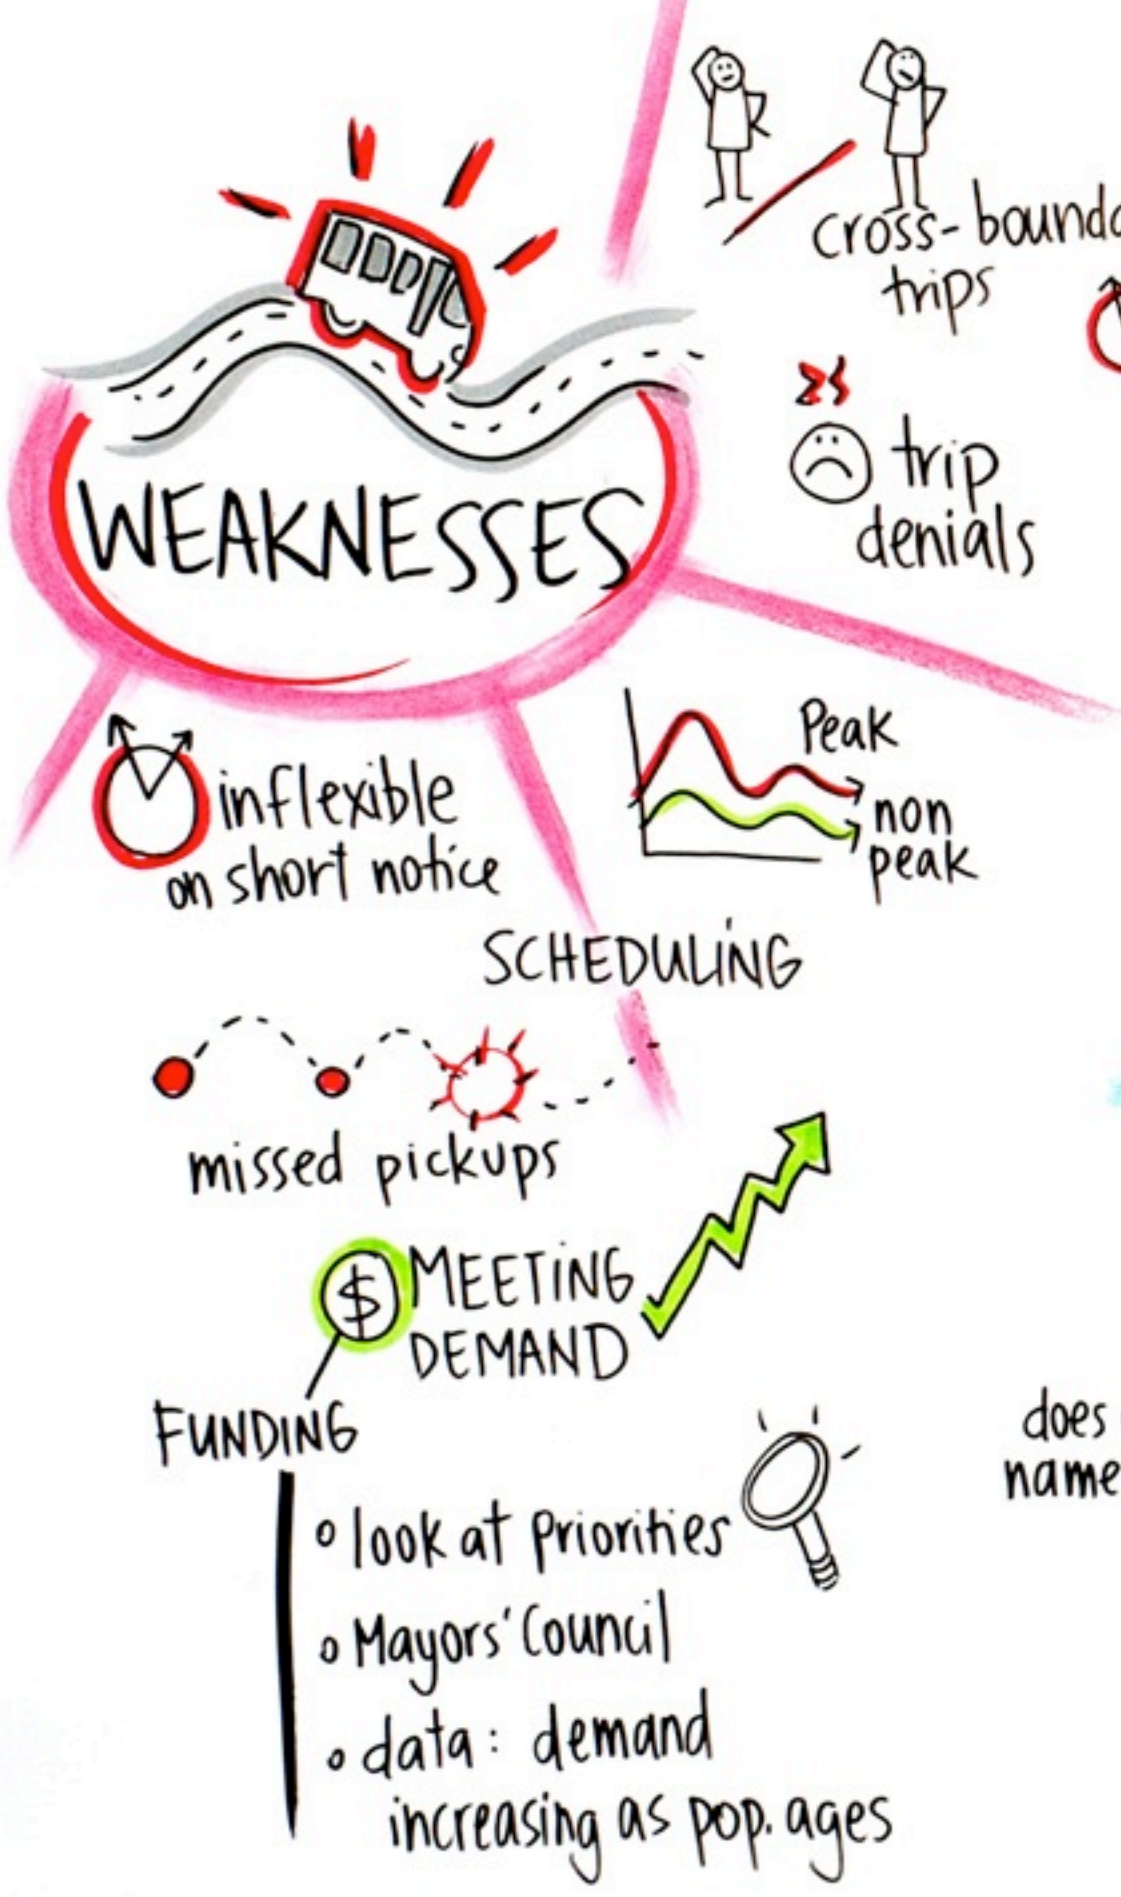 cross-bounda
trips
trip
denials
WEAKNESSES
Peak
non
peak
inflexible
on short notice
SCHEDULING
missed pickups
$ MEETING
DEMAND
FUNDING
does
name
look at priorities
Mayors' Council
data: demand
increasing as pop. ages